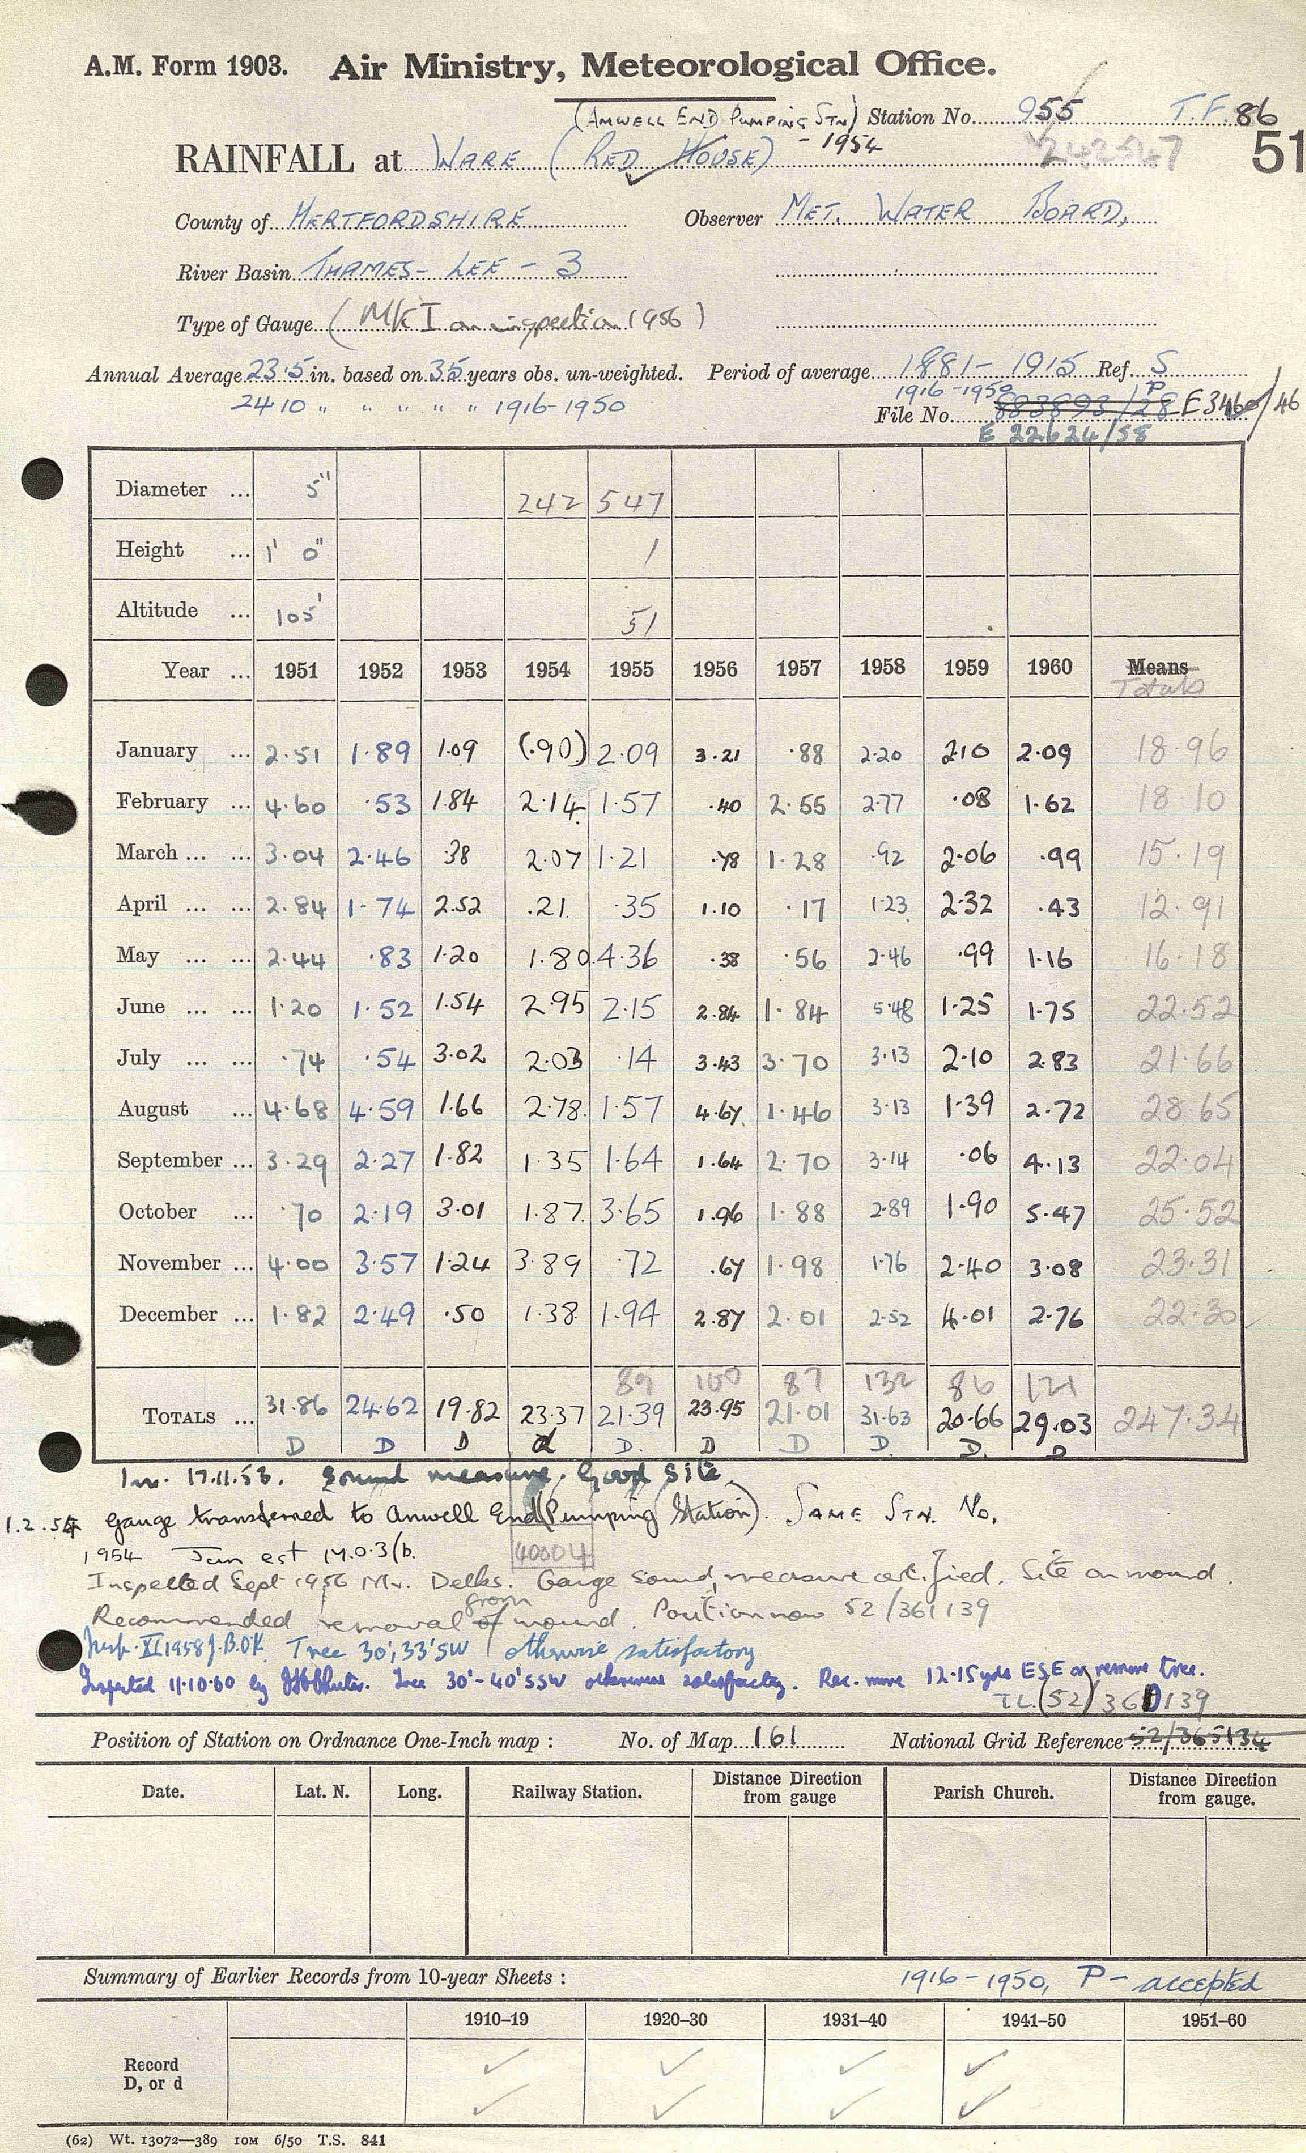 A.M. Form 1903. Air Ministry, Meteorological Office.
(AMWELL END PUMPING STN) Station No. 955 T.F. 86
RAINFALL at WARE (RED HOUSE) - 1954 242547 51
County of HERTFORDSHIRE Observer MET. WATER BOARD,
River Basin THAMES - LEE - 3
Type of Gauge (MK I on inspection 1956)
Annual Average 23.5 in. based on 35 years obs. un-weighted. Period of average 1881 - 1915 Ref. S
2410 " " " " " 1916-1950 1916-1950 P
File No. 883893/28 E3460/46
E 22624/58
Diameter ... 5" 242 547
Height ... 1' 0" 1
Altitude ... 105' 51
Year ... 1951 1952 1953 1954 1955 1956 1957 1958 1959 1960 Means
Totals
January ... 2.51 1.89 1.09 (.90) 2.09 3.21 .88 2.20 2.10 2.09 18.96
February ... 4.60 .53 1.84 2.14 1.57 .40 2.55 2.77 .08 1.62 18.10
March ... ... 3.04 2.46 .38 2.07 1.21 .78 1.28 .92 2.06 .99 15.19
April ... ... 2.84 1.74 2.52 .21 .35 1.10 .17 1.23 2.32 .43 12.91
May ... ... 2.44 .83 1.20 1.80 4.36 .38 .56 2.46 .99 1.16 16.18
June ... ... 1.20 1.52 1.54 2.95 2.15 2.84 1.84 5.48 1.25 1.75 22.52
July ... ... .74 .54 3.02 2.03 .14 3.43 3.70 3.13 2.10 2.83 21.66
August ... 4.68 4.59 1.66 2.78 1.57 4.67 1.46 3.13 1.39 2.72 28.65
September ... 3.29 2.27 1.82 1.35 1.64 1.64 2.70 3.14 .06 4.13 22.04
October ... .70 2.19 3.01 1.87 3.65 1.96 1.88 2.89 1.90 5.47 25.52
November ... 4.00 3.57 1.24 3.89 .72 .67 1.98 1.76 2.40 3.08 23.31
December ... 1.82 2.49 .50 1.38 1.94 2.87 2.01 2.52 4.01 2.76 22.30
89 100 87 132 86 121
TOTALS ... 31.86 24.62 19.82 23.37 21.39 23.95 21.01 31.63 20.66 29.03 247.34
D D D d D. D D D. D. D
In. 17.11.53. Sound measure, Good site.
1.2.54 Gauge transferred to Amwell End (Pumping Station). SAME STN. No.
1954 Jan est M.O.3/b. 40004
Inspected Sept 1956 Mr. Delks. Gauge sound, measure certified. Site on mound.
Recommended removal from of mound. Position now 52/361139
Insp. XI 1958 J.B.OK. Tree 30', 33' SW otherwise satisfactory
Inspected 11.10.60 by Tree 30'-40' SSW otherwise satisfactory. Rec. move 12-15 yds ESE or remove tree.
TL (52) 361139
Position of Station on Ordnance One-Inch map : No. of Map 161 National Grid Reference 52/365134
Date. Lat. N. Long. Railway Station. Distance Direction from gauge Parish Church. Distance Direction from gauge.
Summary of Earlier Records from 10-year Sheets : 1916-1950, P - accepted
1910–19 1920–30 1931–40 1941–50 1951–60
Record
D, or d
(62) Wt. 13072—389 10M 6/50 T.S. 841